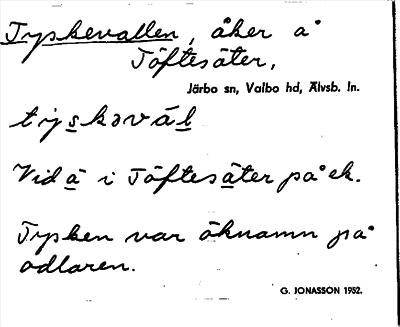 Tyskevallen, åker å
Töftesäter,
Järbo sn, Valbo hd, Älvsb. ln.
tyskəväl
Vid å i Töftesäter på ek.
Tysken var öknamn på
odlaren.
G. JONASSON 1952.